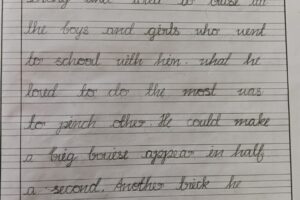 the boys and girls who went
to school with him. what he
loved to do the most was
to pinch other. He could make
a big appear in half
a second. Another trick he